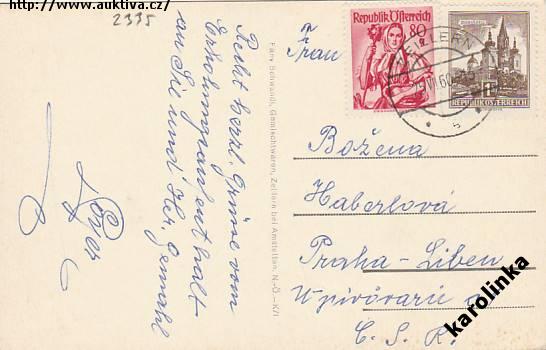 http://www.auktiva.cz/
2335
Recht herzl. Grüsse vom
Erholungsaufenthalt
an Sie und Hr. Gemahl
Fanny Schwandl, Gemischtwaren, Zeillern bei Amstetten, N.-Ö.-K/I
Republik Österreich
80
MARIAZELL
REPUBLIK ÖSTERREICH
ZEILLERN
VI. 60
Frau
Božena
Haberlová
Praha-Liben
U pivovaru
Č. S. R.
karolinka